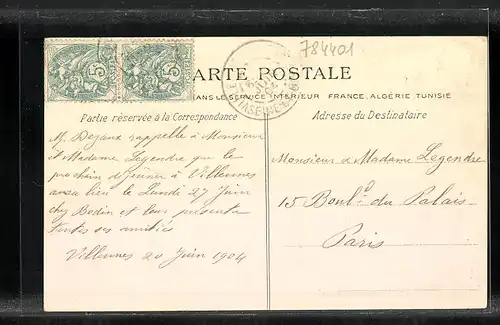 784401
5 5
CARTE POSTALE
DANS LE SERVICE INTÉRIEUR FRANCE, ALGÉRIE TUNISIE
Partie réservée à la Correspondance
Adresse du Destinataire
M. Dezaux rappelle à Monsieur
et Madame Legendre que le
prochain déjeuner à Villennes
aura lieu le Lundi 27 Juin
chez Bodin et leur présente
toutes ses amitiés
Villennes 20 Juin 1904
Monsieur & Madame Legendre
15 Boul.d du Palais
Paris